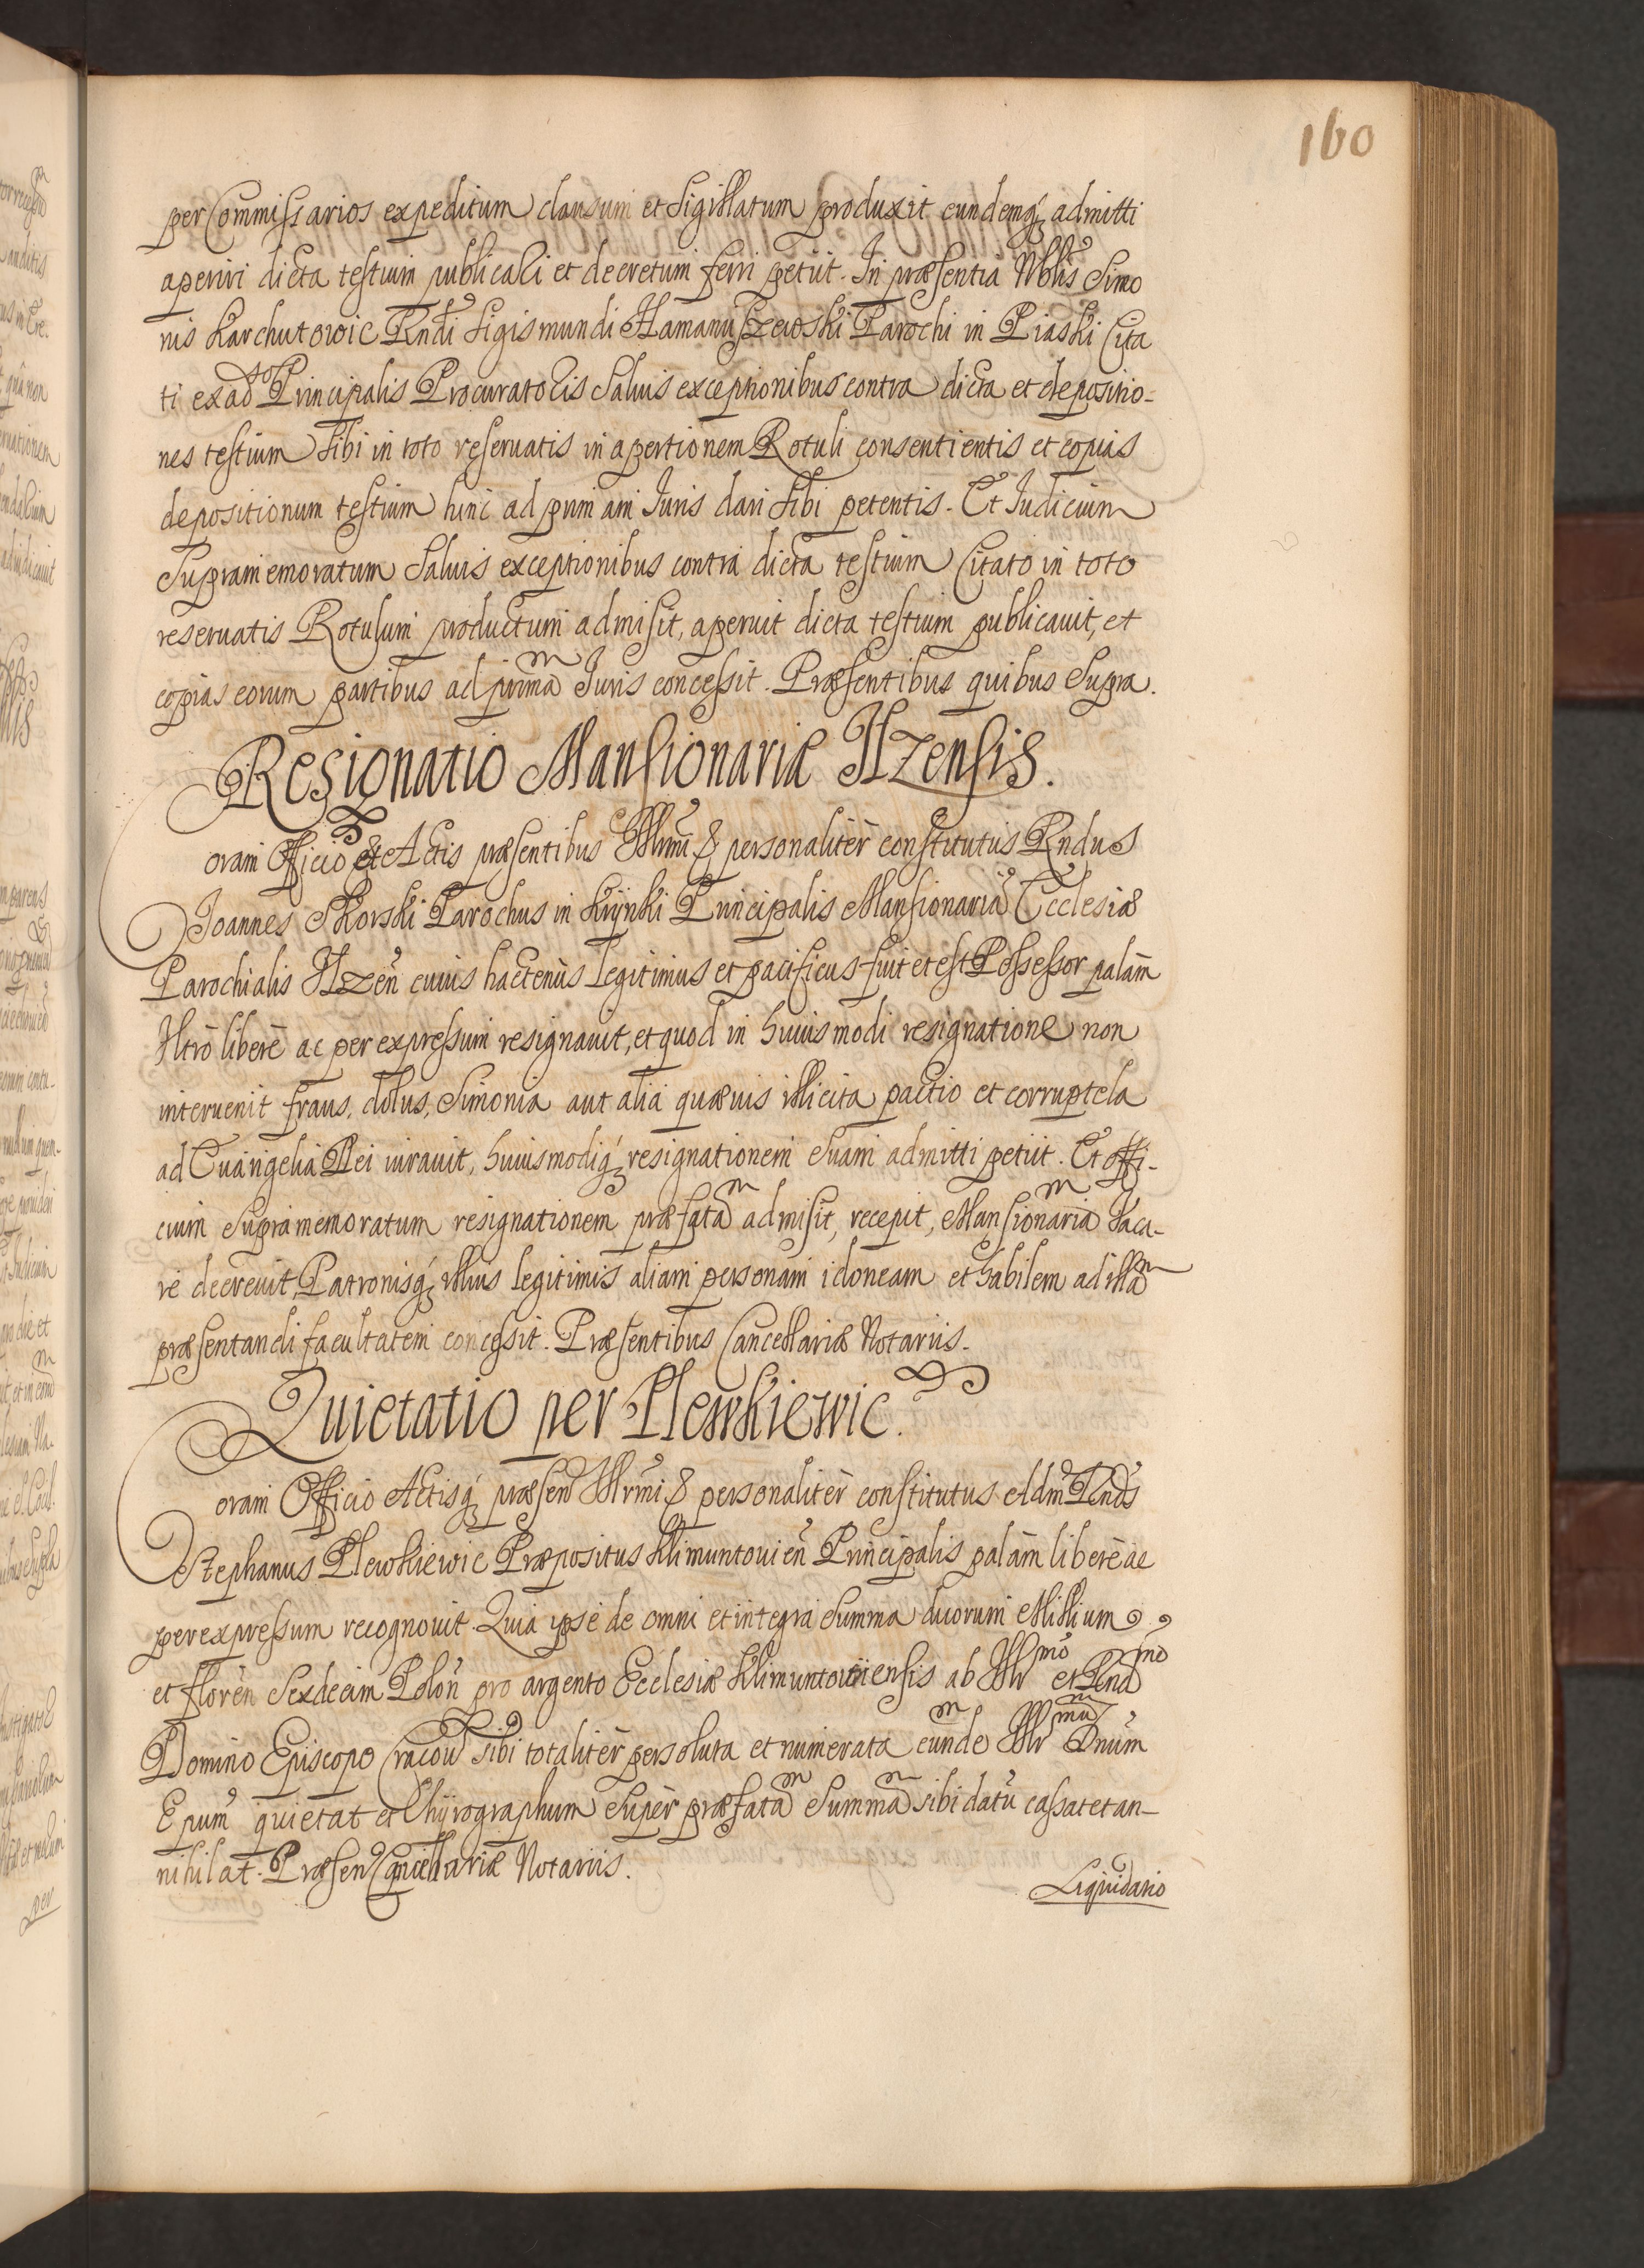 160
per Commissarios expeditum clausum et Sigillatum produxit eundemq́ꝫ admitti
aperiri dicta testium publicari et decretum ferri petiit. In præsentia Nblis Simo
nis Karchutowic Rndi Sigismundi Parochi in Piaski Cita
ti ex adto Principalis Procuratoris Saluis exceptionibus contra dicta et depositio-
nes testium Sibi in toto reseruatis in apertionem Rotuli consentientis et copias
depositionum testium hinc ad primam Iuris dari Sibi petentis. Et Iudicium
Supramemoratum Saluis exceptionibus contra dicta testium Citato in toto
reseruatis Rotulum productum admisit, aperuit dicta testium publicauit, et
copias eorum partibus ad primam Iuris concessit. Præsentibus quibus Supra.
Resignatio Mansionariæ Ilzensis.
Coram Officio et Actis præsentibus Illrmi & personalitèr constitutus Rndus
Joannes Skorski Parochus in Krÿnki Principalis Mansionariæ Ecclesiæ
Parochialis Ilzen̄ cuius hactenùs legitimus et pacificus fuit et est Possessor palàm
Vltrò liberè ac per expressum resignauit, et quod in huiusmodi resignatione non
interuenit fraus, dolus, Simonia aut alia quæuis illicita pactio et corruptela
ad Euangelia Dei iurauit, huiusmodiq́ꝫ resignationem Suam admitti petiit. Et offi-
cium Supramemoratum resignationem præfatam admisit, recepit, Mansionariam Vaca-
re decreuit, Patronisq́ꝫ illius legitimis aliam personam idoneam et habilem ad illam
præsentandi facultatem concessit. Præsentibus Cancellariæ Notariis.
Quietatio per Plewkiewic.
Coram Officio Actisq́ꝫ præsen Illrmi & personalitèr constitutus Adm̄ Rnds
Stephanus Plewkiewic Præpositus Klimuntouien̄ Principalis palàm liberè ac
per expressum recognouit. Quia ipse de omni et integra Summa duorum Millium
et floren̄ Sexdecim Polon̄ pro argento Ecclesiæ Klimuntouiensis ab Illrmo et Rndmo
Domino Episcopo Cracou̅ Sibi totalitèr persoluta et numerata eundem Illrmum Dnūm
Epum̄ quietat et Chÿrographum Supèr præfatam Summam sibi datū cassat et an-
nihilat. Præsen Cancellariæ Notariis.
Liquidatio